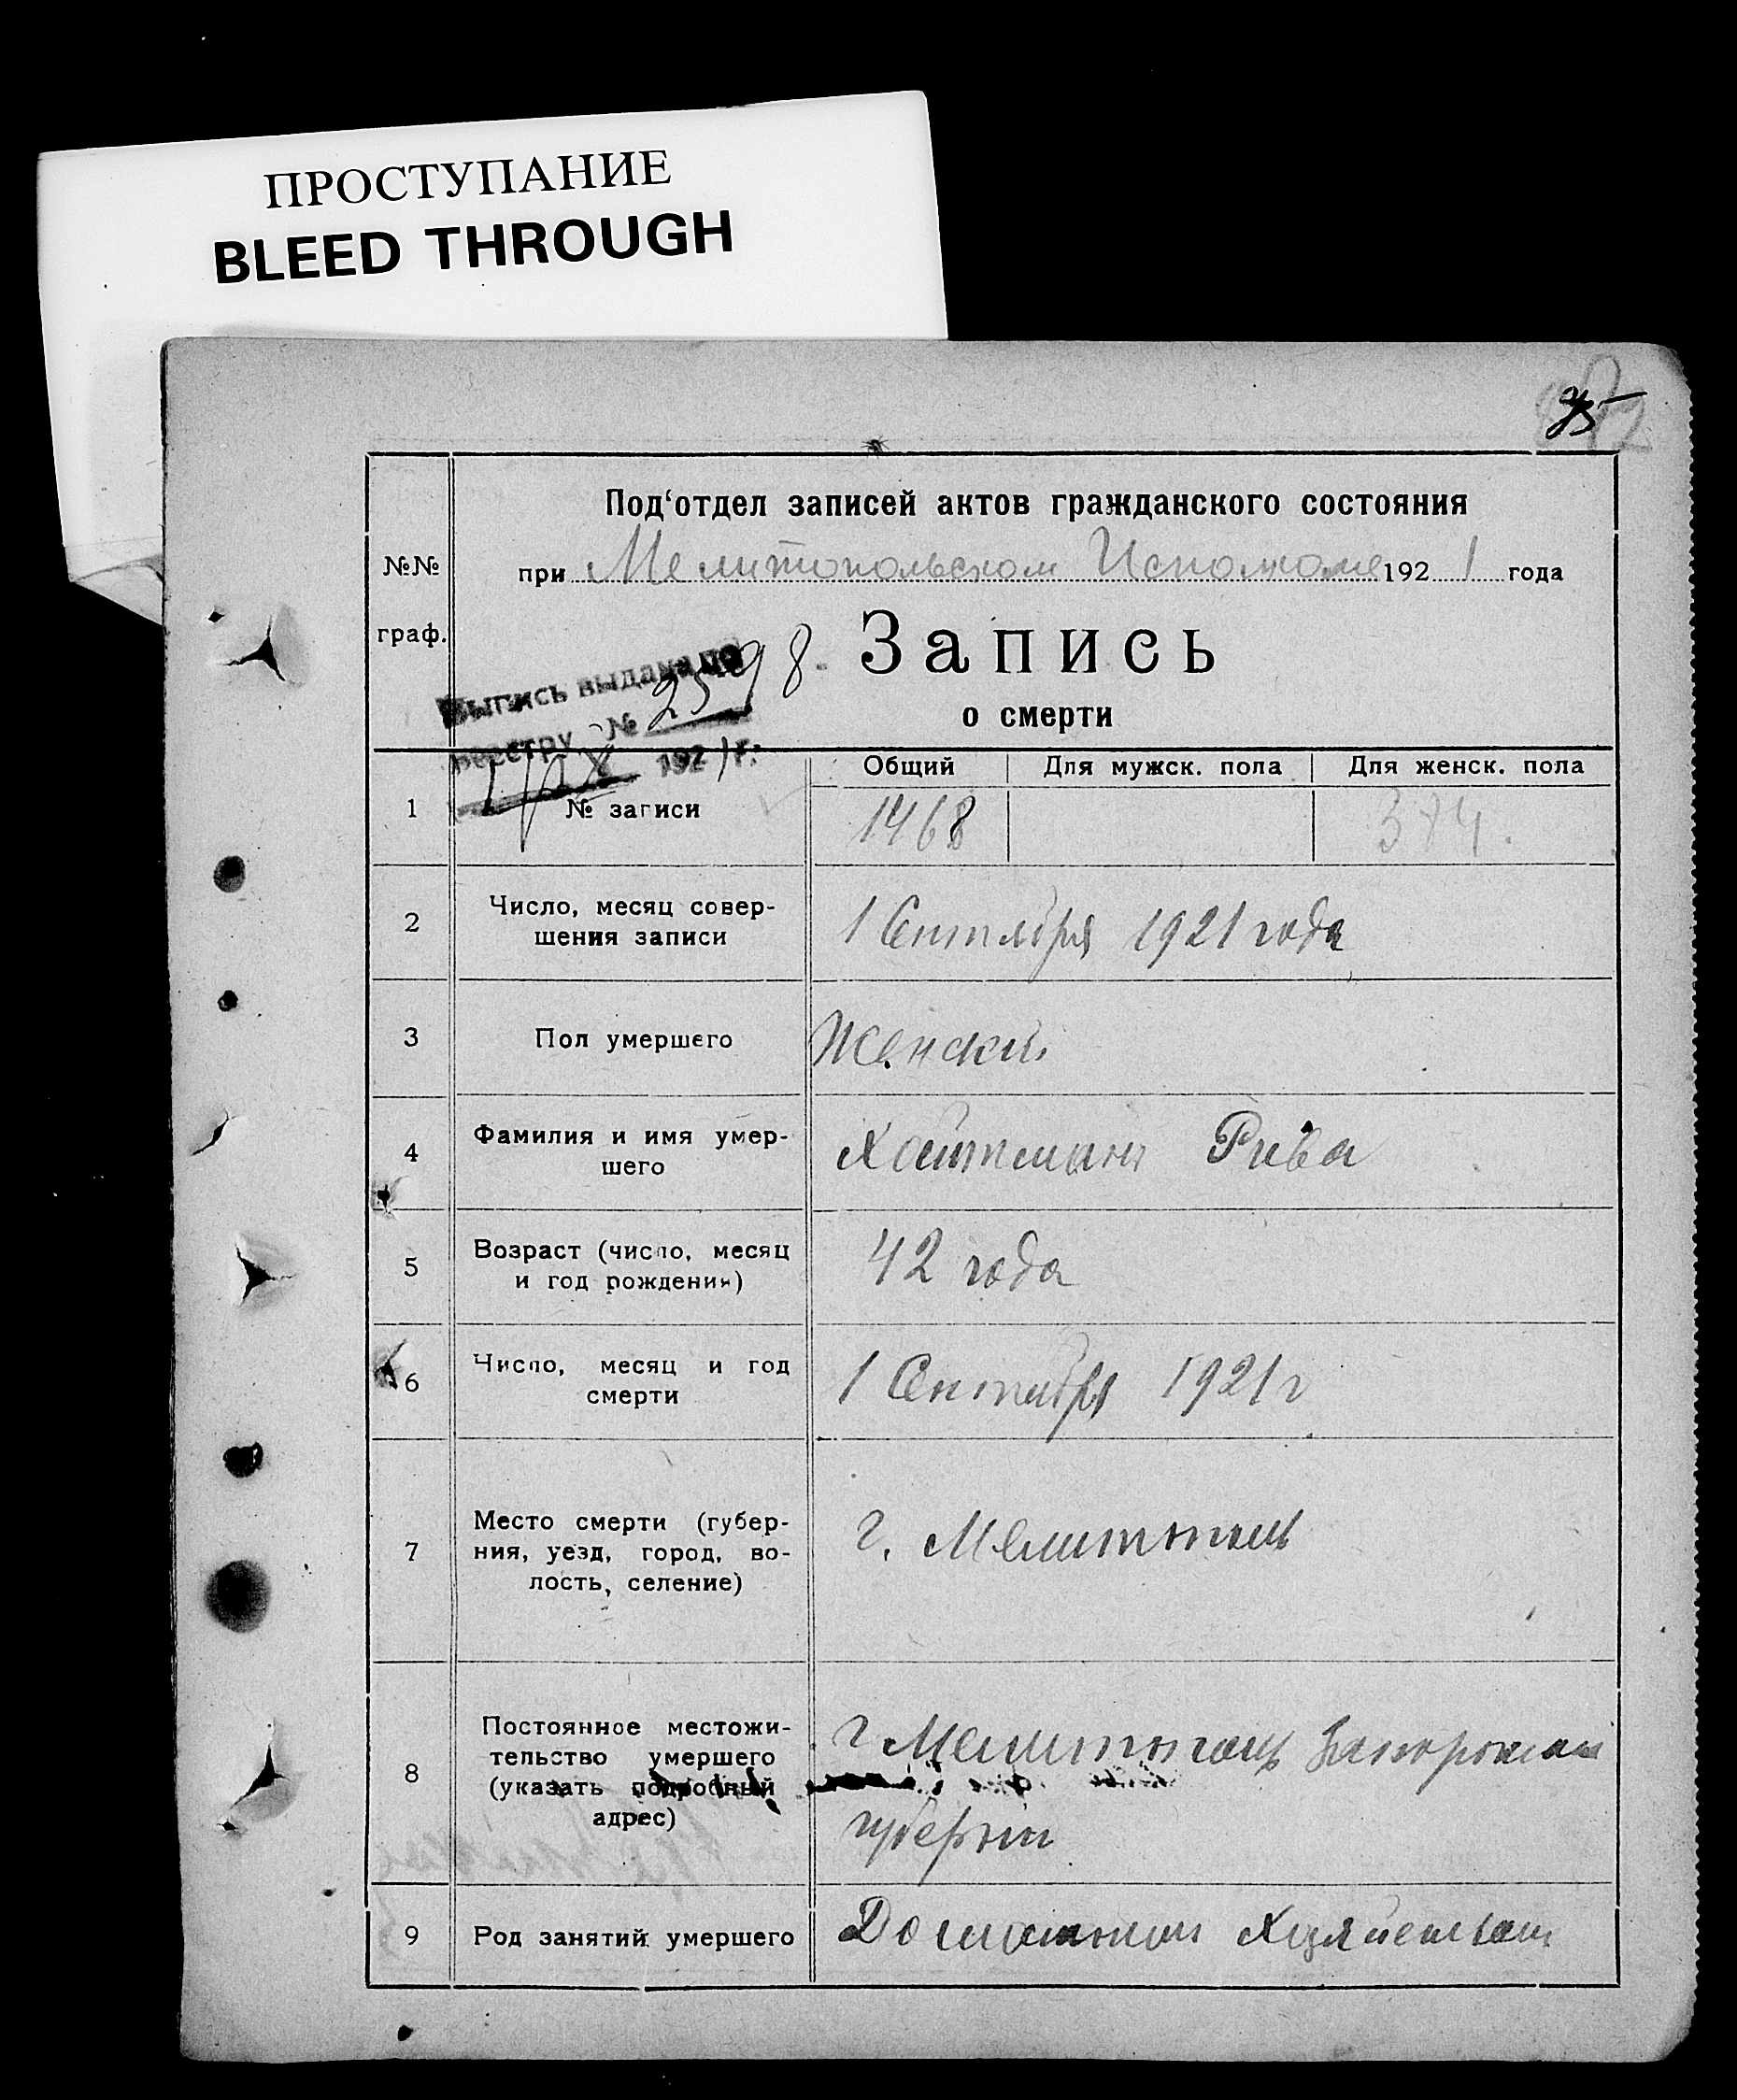 ПРОСТУПАНИЕ
BLEED THROUGH
Под‘отдел записей актов гражданского состояния
№№
граф.
при Мелитопольском Исполкоме 1921 года
Запись
о смерти
Выпись выдана по
реестру № 2598
192 1 г.
Общий Для мужск. пола Для женск. пола
1 № записи 1468 374.
2 Число, месяц совер-
шения записи
1 Сентября 1921 года
3 Пол умершего Женский
4 Фамилия и имя умер-
шего
Хайтман Рива
5 Возраст (число, месяц
и год рождения)
42 года
6 Число, месяц и год
смерти
1 Сентября 1921 г
7 Место смерти (губер-
ния, уезд, город, во-
лость, селение)
г. Мелитополь
8 Постоянное местожи-
тельство умершего
(указать подробный
адрес)
г Мелитополь Запорожской
губернии
9 Род занятий умершего